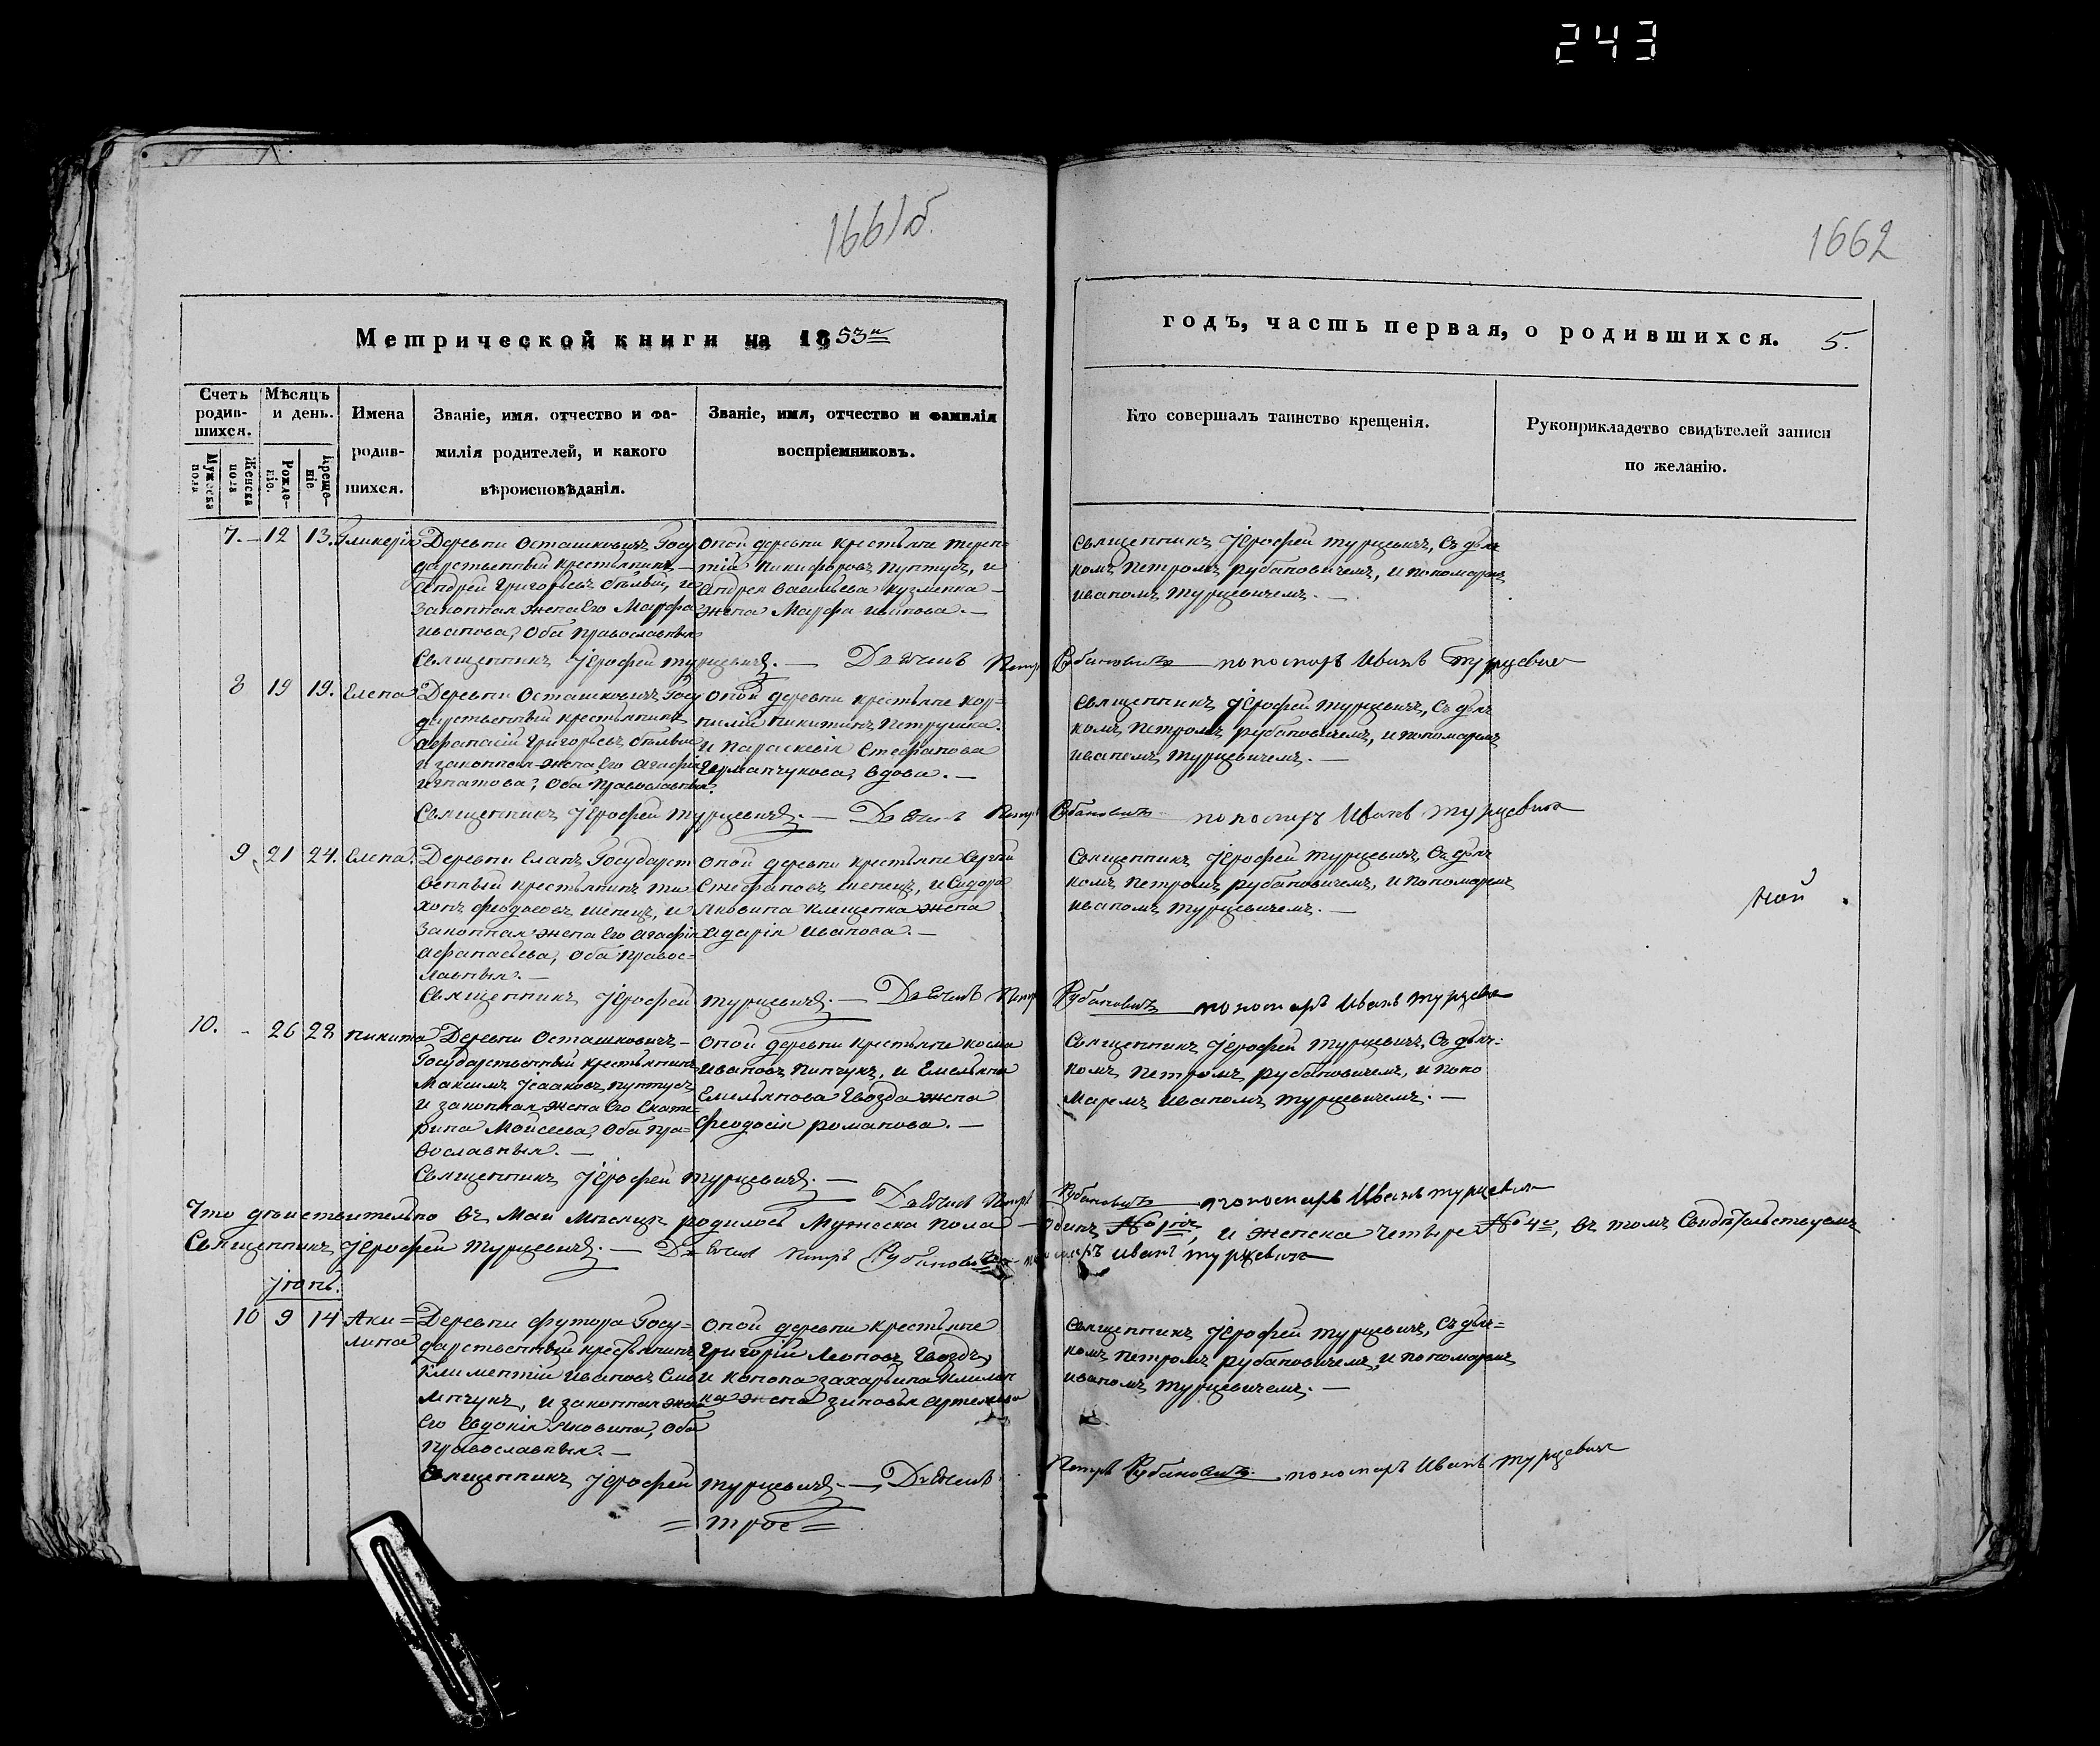 243
1661б.
1662
Метрической книги на 1853й
годъ, часть первая, о родившихся. 5.
Счетъ родив- шихся.
Мѣсяцъ и день.
Имена родив- шихся.
Званіе, имя, отчество и фа- милія родителей, и какого вѣроисповѣданія.
Званіе, имя, отчество и фамилія воспріемниковъ.
Кто совершалъ таинство крещенія.
Рукоприкладство свидѣтелей записи по желанію.
Мужеска пола
Женска пола
Рожде- ніе.
Креще- ніе
7. 12 13. Гликерія
Деревни Осташковичъ Госу
дарственный крестьянинъ
Андрей Григорьевъ Бѣлый, и
Законная жена Его Марфа
Иванова, Оба Православныя
Оной деревни крестьяне Терен=
тій Никифоровъ Пунтусъ, и
Андрея Васильева Кузменка
жена Марфа Иванова.
Священникъ Іерофей Турцевичъ, Съ дьяч
комъ Петромъ Рубановичемъ, и пономаремъ
Иваномъ Турцевичемъ.
Священникъ Іерофей Турцевичъ. — Дьячекъ Петръ Рубановичъ пономарь Иванъ Турцевич
8 19 19. Елена
Деревни Осташковичъ Госу
дарственный крестьянинъ
Афанасій Григорьевъ Бѣлый
и законная жена Его Агафія
Игнатова, Оба Православныя.
Оной деревни крестьяне Кор=
нилій Никитинъ Петрушка.
и Параскевія Стефанова
Германчукова, вдова.
Священникъ Іерофей Турцевичъ, Съ дьяч
комъ Петромъ Рубановичемъ, и пономаремъ
Иваномъ Турцевичемъ.
Священникъ Іерофей Турцевичъ. — Дьячекъ Петръ Рубановичъ пономарь Иванъ Турцевич
9 21 24. Елена.
Деревни Еланъ Государст
венный крестьянинъ Ти
хонъ Феодоровъ Шепецъ, и
Законная жена Его Агафія
Афанасьева, Оба Правос=
лавныя.
Оной деревни крестьяне Сергій
Стефановъ Шепецъ, и Сидора
Яковина Клещенка жена
Дарія Иванова.
Священникъ Іерофей Турцевичъ, Съ дьяч
комъ Петромъ Рубановичемъ, и пономаремъ
Иваномъ Турцевичемъ.
Май
Священникъ Іерофей Турцевичъ. — Дьячекъ Петръ Рубановичъ пономарь Иванъ Турцевич
10. 26 28 Никита
Деревни Осташковичъ
Государственный крестьянинъ
Максимъ Ісааковъ Пунтусъ
и законная жена Его Екате=
рина Моисеева, Оба Пра=
вославныя.
Оной деревни крестьяне Косма
Ивановъ Пинчукъ, и Емельяна
Емельянова Гвозда жена
Феодосія Романова.
Священникъ Іерофей Турцевичъ, Съ дьяч=
комъ Петромъ Рубановичемъ, и поно
маремъ Иваномъ Турцевичемъ.
Священникъ Іерофей Турцевичъ.
Дьячекъ Петръ Рубановичъ пономарь Иванъ Турцевич
Что дѣйствительно въ Маи Мѣсяцѣ родилось Мужеска пола — Одинъ № 1, и женска Четыре № 4, въ томъ Свидѣтельствуемъ
Священникъ Іерофей Турцевичъ. — Дьячекъ Петръ Рубановичъ пономарь Иванъ Турцевич
Іюнь.
10 9 14 Аки=
лина
Деревни Футора Госу=
дарственный крестьянинъ
Климентій Ивановъ Еме
лянчукъ, и законная жена
Его Евдокія Яковина, Оба
Православныя.
Оной деревни крестьяне
Григорій Леоновъ Гвоздь,
и Конона Захарьина
жена Зиновія Артемова
Священникъ Іерофей Турцевичъ, Съ дьяч=
комъ Петромъ Рубановичемъ, и пономаремъ
Иваномъ Турцевичемъ.
Священникъ Іерофей Турцевичъ. — Дьячекъ Петръ Рубановичъ. пономарь Иванъ Турцевич
= трое =